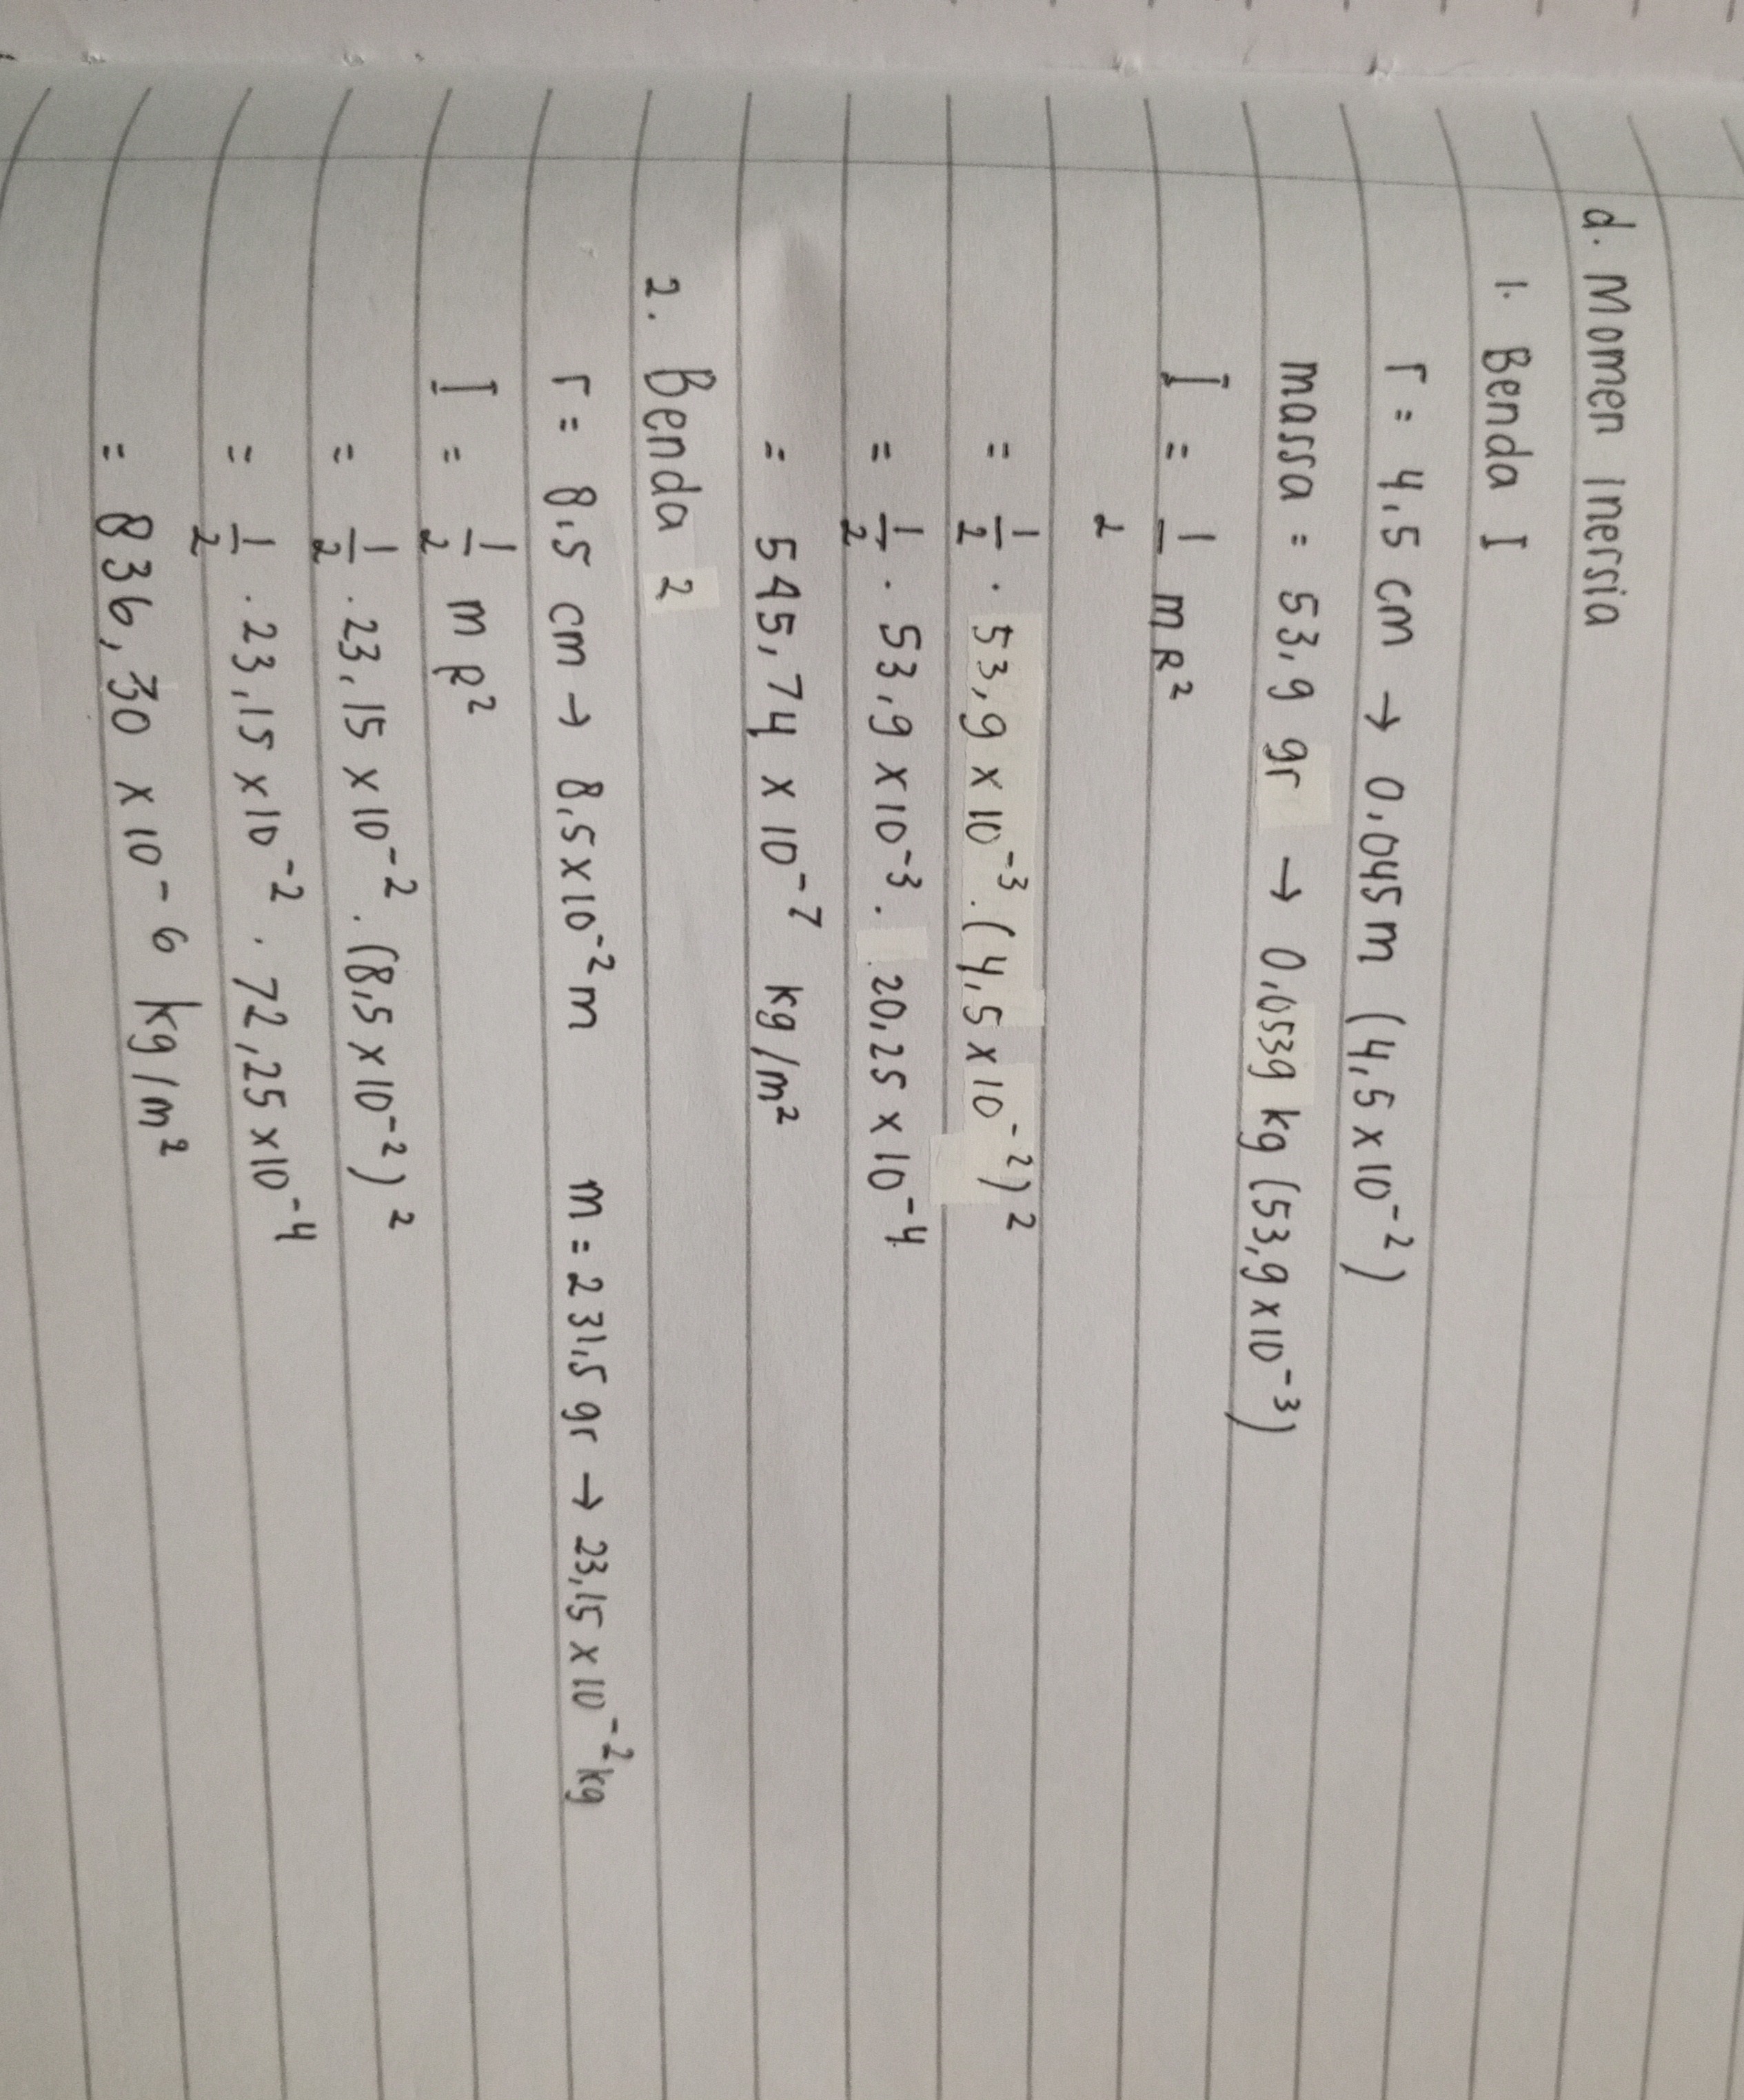 d. Momen Inersia
1. Benda I
r = 4,5 cm → 0,045 m (4,5 x 10⁻²)
massa = 53,9 gr → 0,0539 kg (53,9 x 10⁻³)
I = 1/2 m R²
= 1/2 . 53,9 x 10⁻³ . (4,5 x 10⁻²)²
= 1/2 . 53,9 x 10⁻³ . 20,25 x 10⁻⁴
= 545,74 x 10⁻⁷ kg/m²
2. Benda 2
r = 8,5 cm → 8,5 x 10⁻² m m = 231,5 gr → 23,15 x 10⁻² kg
I = 1/2 m R²
= 1/2 . 23,15 x 10⁻² . (8,5 x 10⁻²)²
= 1/2 . 23,15 x 10⁻² . 72,25 x 10⁻⁴
= 836,30 x 10⁻⁶ kg/m²